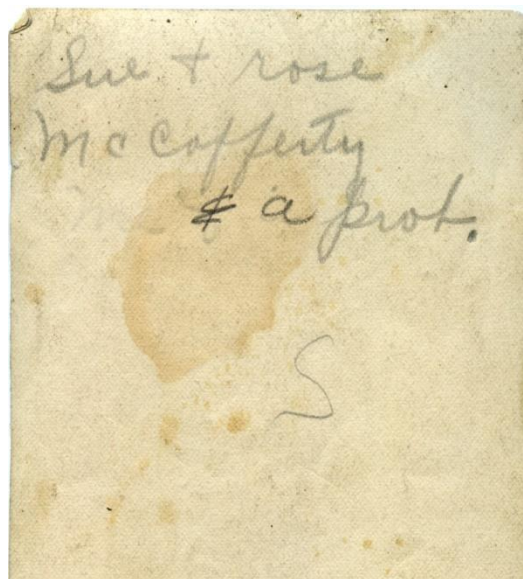 Sue + rose
McCafferty
& a prot.
S